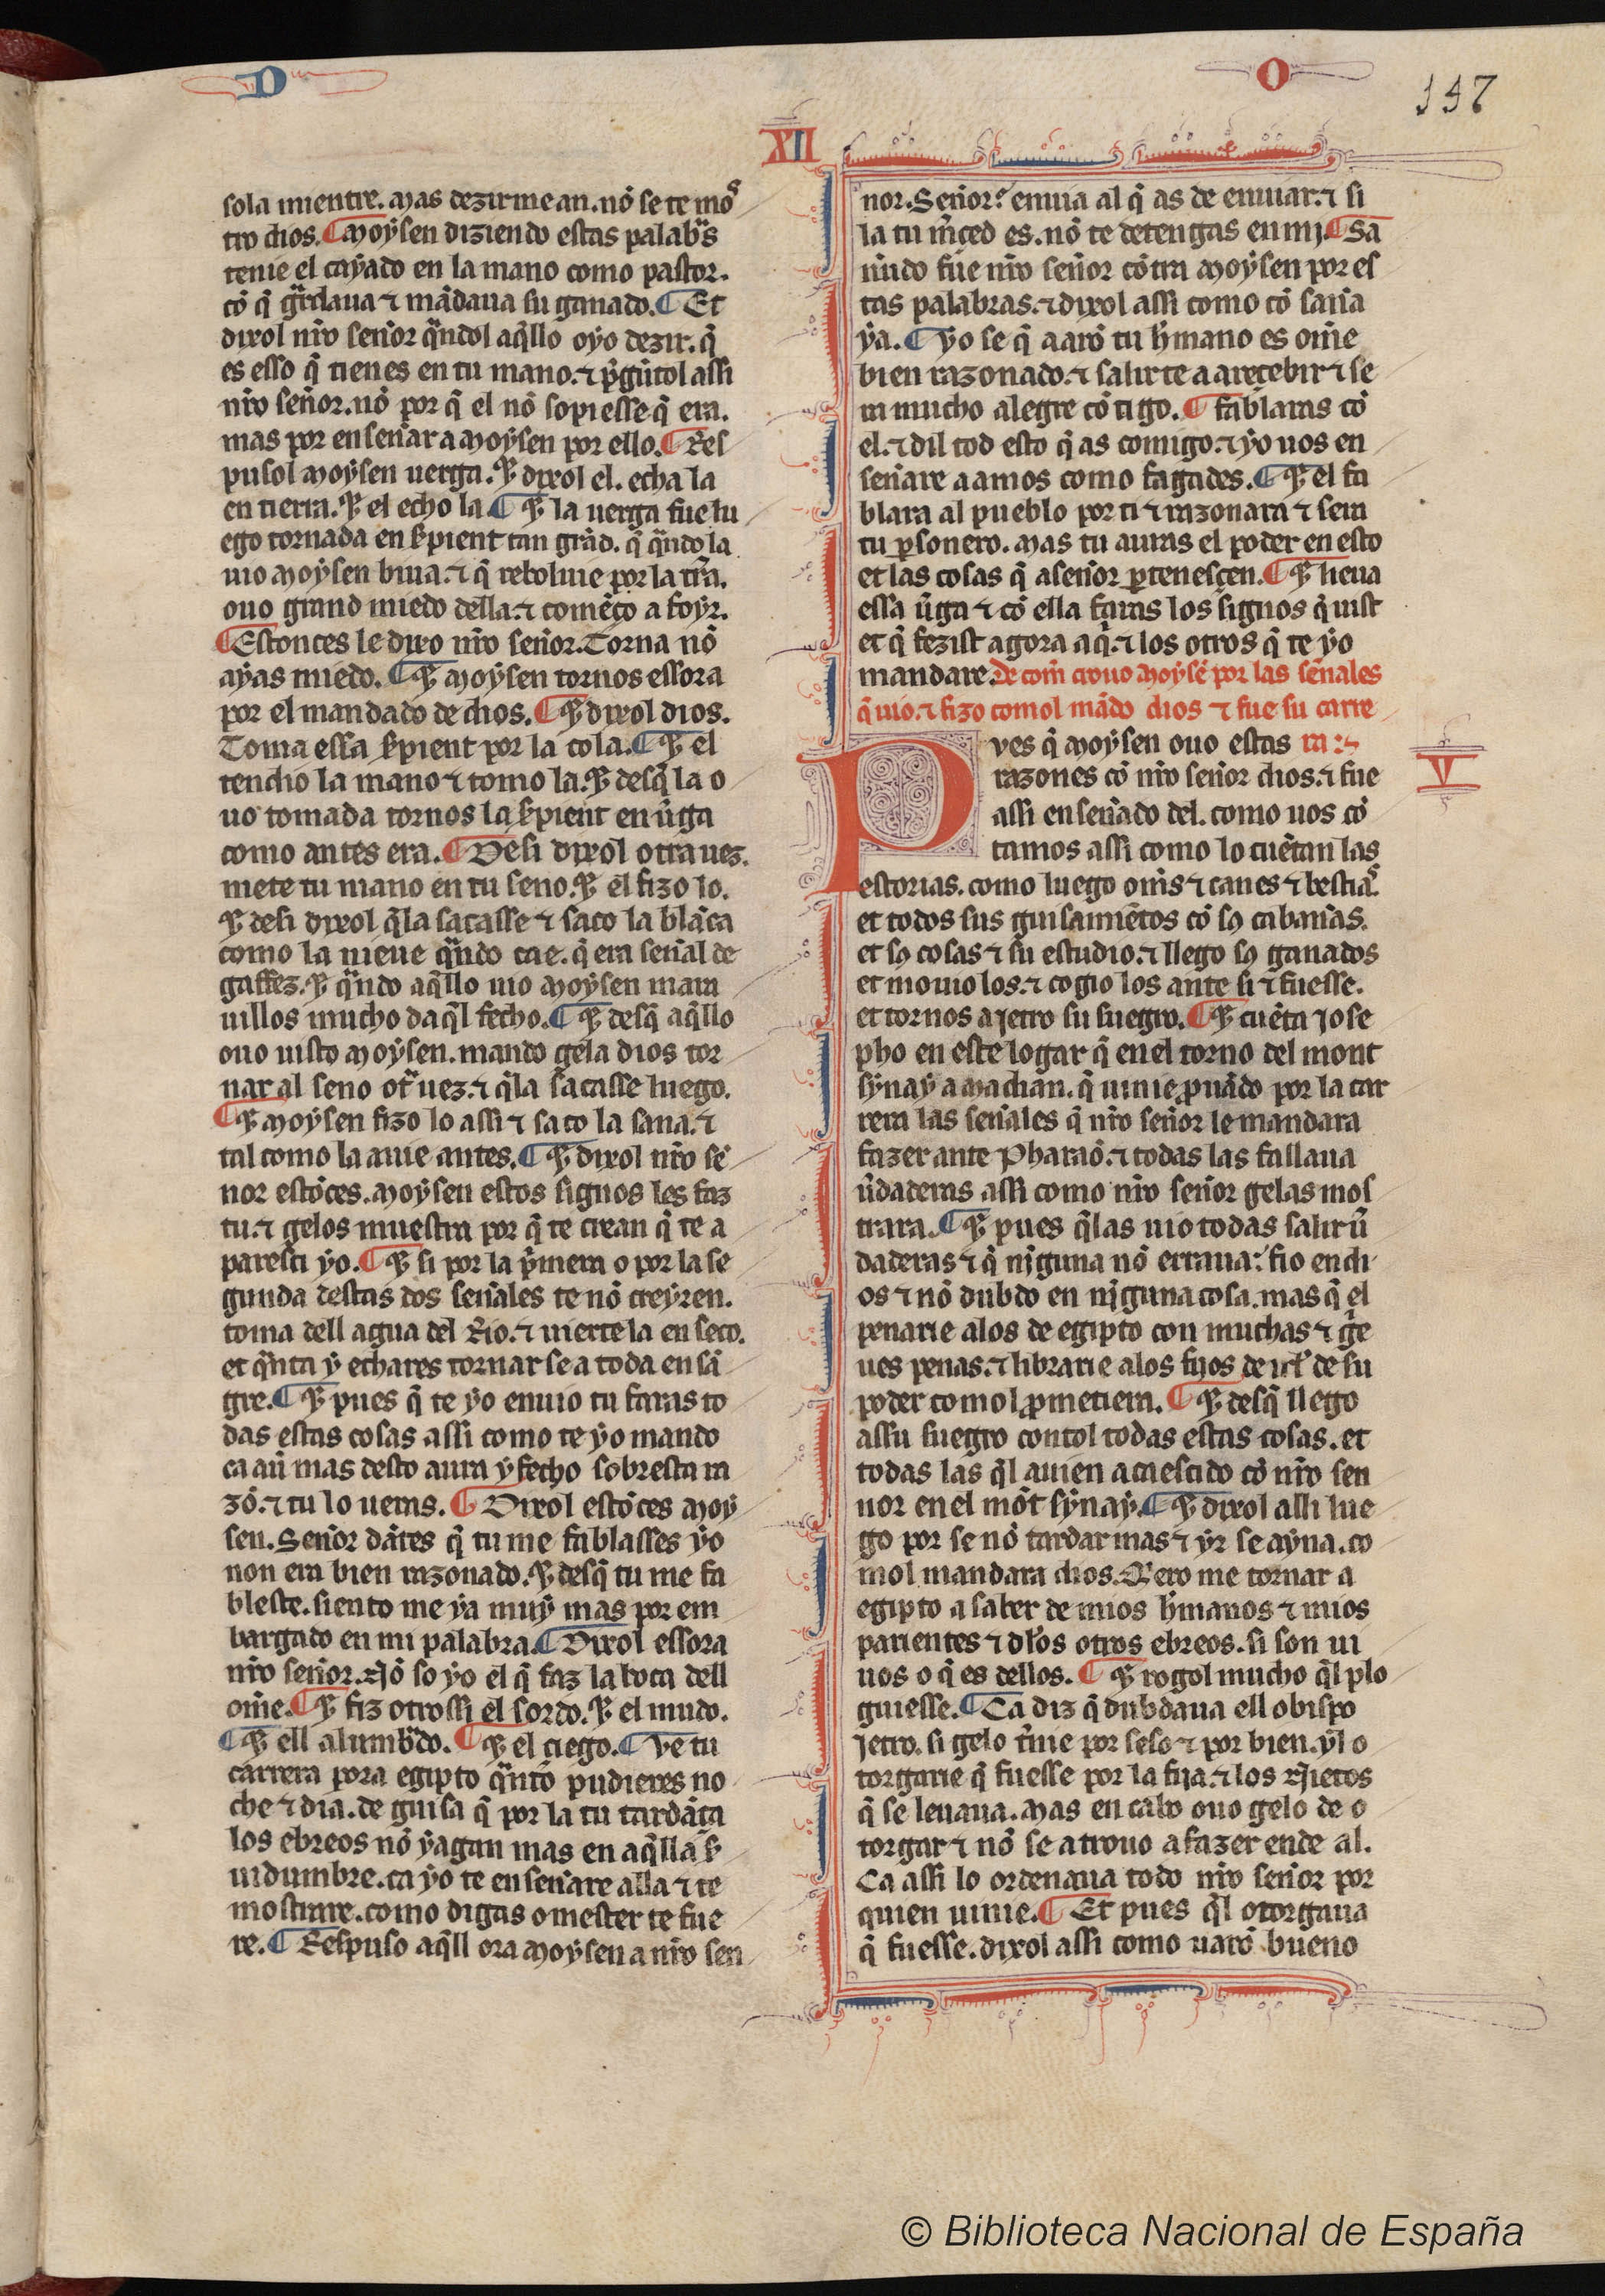 D
O
147
XII
sola mientre. Mas dezirmean. nõ se te mos
tro dios. ¶ Moysen diziendo estas palabras
tenie el cayado en la mano como pastor.
cõ q̃ gr̃daua ⁊ mãdaua su ganado. ¶ Et
dixol nr̃o sennor qñdol aq̃llo oyo dezir. q̃
es esso q̃ tienes en tu mano. ⁊ p̃gũtol assi
nr̃o sennor. nõ por q̃ el nõ sopiesse q̃ era.
mas por ensennar a Moysen por ello. ¶ Res
pusol Moysen uerga. ⁊ dixol el. echa la
en tierra. ⁊ el echo la. ¶ ⁊ la uerga fue lu
ego tornada en s̃pient tan grãd. q̃ qñdo la
uio Moysen biua. ⁊ q̃ reboluie por la tr̃ra.
ouo grand miedo della. ⁊ comẽço a foyr.
¶ Estonces le dixo nr̃o sennor. Torna nõ
ayas miedo. ¶ ⁊ Moysen tornos essora
por el mandado de dios. ¶ ⁊ dixol dios.
Toma essa s̃pient por la cola. ¶ ⁊ el
tendio la mano ⁊ tomo la. ⁊ desq̃ la o
uo tomada tornos la s̃pient en ũga
como antes era. ¶ Desi dixol otra uez.
mete tu mano en tu seno. ⁊ el fizo lo.
⁊ desi dixol q̃la sacasse ⁊ saco la blãca
como la nieue qñdo cae. q̃ era sennal de
gaffez. ⁊ qñdo aq̃llo uio Moysen mara
uillos mucho daq̃l fecho. ¶ ⁊ desq̃ aq̃llo
ouo uisto Moysen. mando gela dios tor
nar al seno otr̃ uez. ⁊ q̃la sacasse luego.
¶ ⁊ Moysen fizo lo assi ⁊ saco la sana. ⁊
tal como la auie antes. ¶ ⁊ dixol nr̃o se
nnor estõces. Moysen estos signos les faz
tu. ⁊ gelos muestra por q̃ te crean q̃ te a
paresci yo. ¶ ⁊ si por la p̃mera o por la se
gunda destas dos sennales te nõ creyren.
toma dell agua del Rio. ⁊ uierte la en seco.
et qñta y echares tornar se a toda en sã
gre. ¶ ⁊ pues q̃ te yo enuio tu faras to
das estas cosas assi como te yo mando
ca aũ mas desto aura y fecho sobresta ra
zõ. ⁊ tu lo ueras. ¶ Dixol estõces Moy
sen. Sennor dãtes q̃ tu me fablasses yo
non era bien razonado. ⁊ desq̃ tu me fa
bleste. siento me ya muy mas por em
bargado en mi palabra. ¶ Dixol essora
nr̃o sennor. Nõ so yo el q̃ faz la boca dell
om̃e. ¶ ⁊ fiz otrossi el sordo. ⁊ el mudo.
¶ ⁊ ell alumbr̃do. ¶ ⁊ el ciego. ¶ Ve tu
carrera pora egipto qñto pudieres no
che ⁊ dia. de guisa q̃ por la tu tardãça
los ebreos nõ yagan mas en aq̃lla s̃
uidumbre. ca yo te ensennare alla ⁊ te
mostrare. como digas o mester te fue
re. ¶ Respuso aq̃ll ora Moysen a nr̃o sen
nor. Sennor. enuia al q̃ as de enuiar. ⁊ si
la tu m̃ced es. nõ te detengas en mj. ¶ Sa
nnudo fue nr̃o sennor cõtra Moysen por es
tas palabras. ⁊ dixol assi como cõ sanna
ya. ¶ Yo se q̃ aarõ tu h̃mano es om̃e
bien razonado. ⁊ salir te a a reçebir ⁊ se
ra mucho alegre cõtigo. ¶ Fablaras cõ
el. ⁊ dil tod esto q̃ as comigo. ⁊ yo uos en
sennare a amos como fagades. ¶ ⁊ el fa
blara al pueblo por ti ⁊ razonara ⁊ sera
tu p̃sonero. Mas tu auras el poder en esto
et las cosas q̃ a sennor p̃tenesçen. ¶ ⁊ lieua
essa ũga ⁊ cõ ella faras los signos q̃ uist
et q̃ fezist agora aq̃. ⁊ los otros q̃ te yo
mandare. De com̃ crouo Moysẽ por las sennales
q̃ uio. ⁊ fizo comol mãdo dios ⁊ fue su carre
Pves q̃ Moysen ouo estas ra
razones cõ nr̃o sennor dios. ⁊ fue
assi ensennado del. como uos cõ
tamos assi como lo cuẽtan las
estorias. como luego om̃s ⁊ canes ⁊ bestias.
et todos sus guisamiẽtos cõ sꝯ cabannas.
et sꝯ cosas ⁊ su estudio. ⁊ llego sꝯ ganados
et mouio los. ⁊ cogio los ante si ⁊ fuesse.
et tornos a Jetro su suegro. ¶ ⁊ cuẽta Jose
pho en este logar q̃ en el torno del mont
synay a Madian. q̃ uinie p̃uãdo por la car
rera las sennales q̃ nr̃o sennor le mandara
fazer ante Pharaõ. ⁊ todas las fallaua
ũdaderas assi como nr̃o sennor gelas mos
trara. ¶ ⁊ pues q̃las uio todas salir ũ
daderas ⁊ q̃ njguna nõ erraua. fio en di
os ⁊ nõ dubdo en njguna cosa. mas q̃ el
penarie a los de egipto con muchas ⁊ g̃e
ues penas. ⁊ librarie a los fijos de isr̃l de su
poder comol p̃metiera. ¶ ⁊ desq̃ llego
a ssu suegro contol todas estas cosas. et
todas las q̃l auien acaescido cõ nr̃o sen
nor en el mõt synay. ¶ ⁊ dixol alli lue
go por se nõ tardar mas ⁊ yr se ayna. co
mol mandara dios. Q̃ero me tornar a
egipto a saber de mios h̃manos ⁊ mios
parientes ⁊ dlos otros ebreos. si son ui
uos o q̃ es dellos. ¶ ⁊ rogol mucho q̃l plo
guiesse. ¶ Ca diz q̃ dubdaua ell obispo
Jetro. si gelo t̃nie por seso ⁊ por bien. yl o
torgarie q̃ fuesse por la fija. ⁊ los Nietos
q̃ se leuaua. Mas en cabo ouo gelo de o
torgar ⁊ nõ se atrouo a fazer ende al.
Ca assi lo ordenaua todo nr̃o sennor por
quien uinie. ¶ Et pues q̃l otorgaua
q̃ fuesse. dixol assi como uarõ bueno
V
© Biblioteca Nacional de España